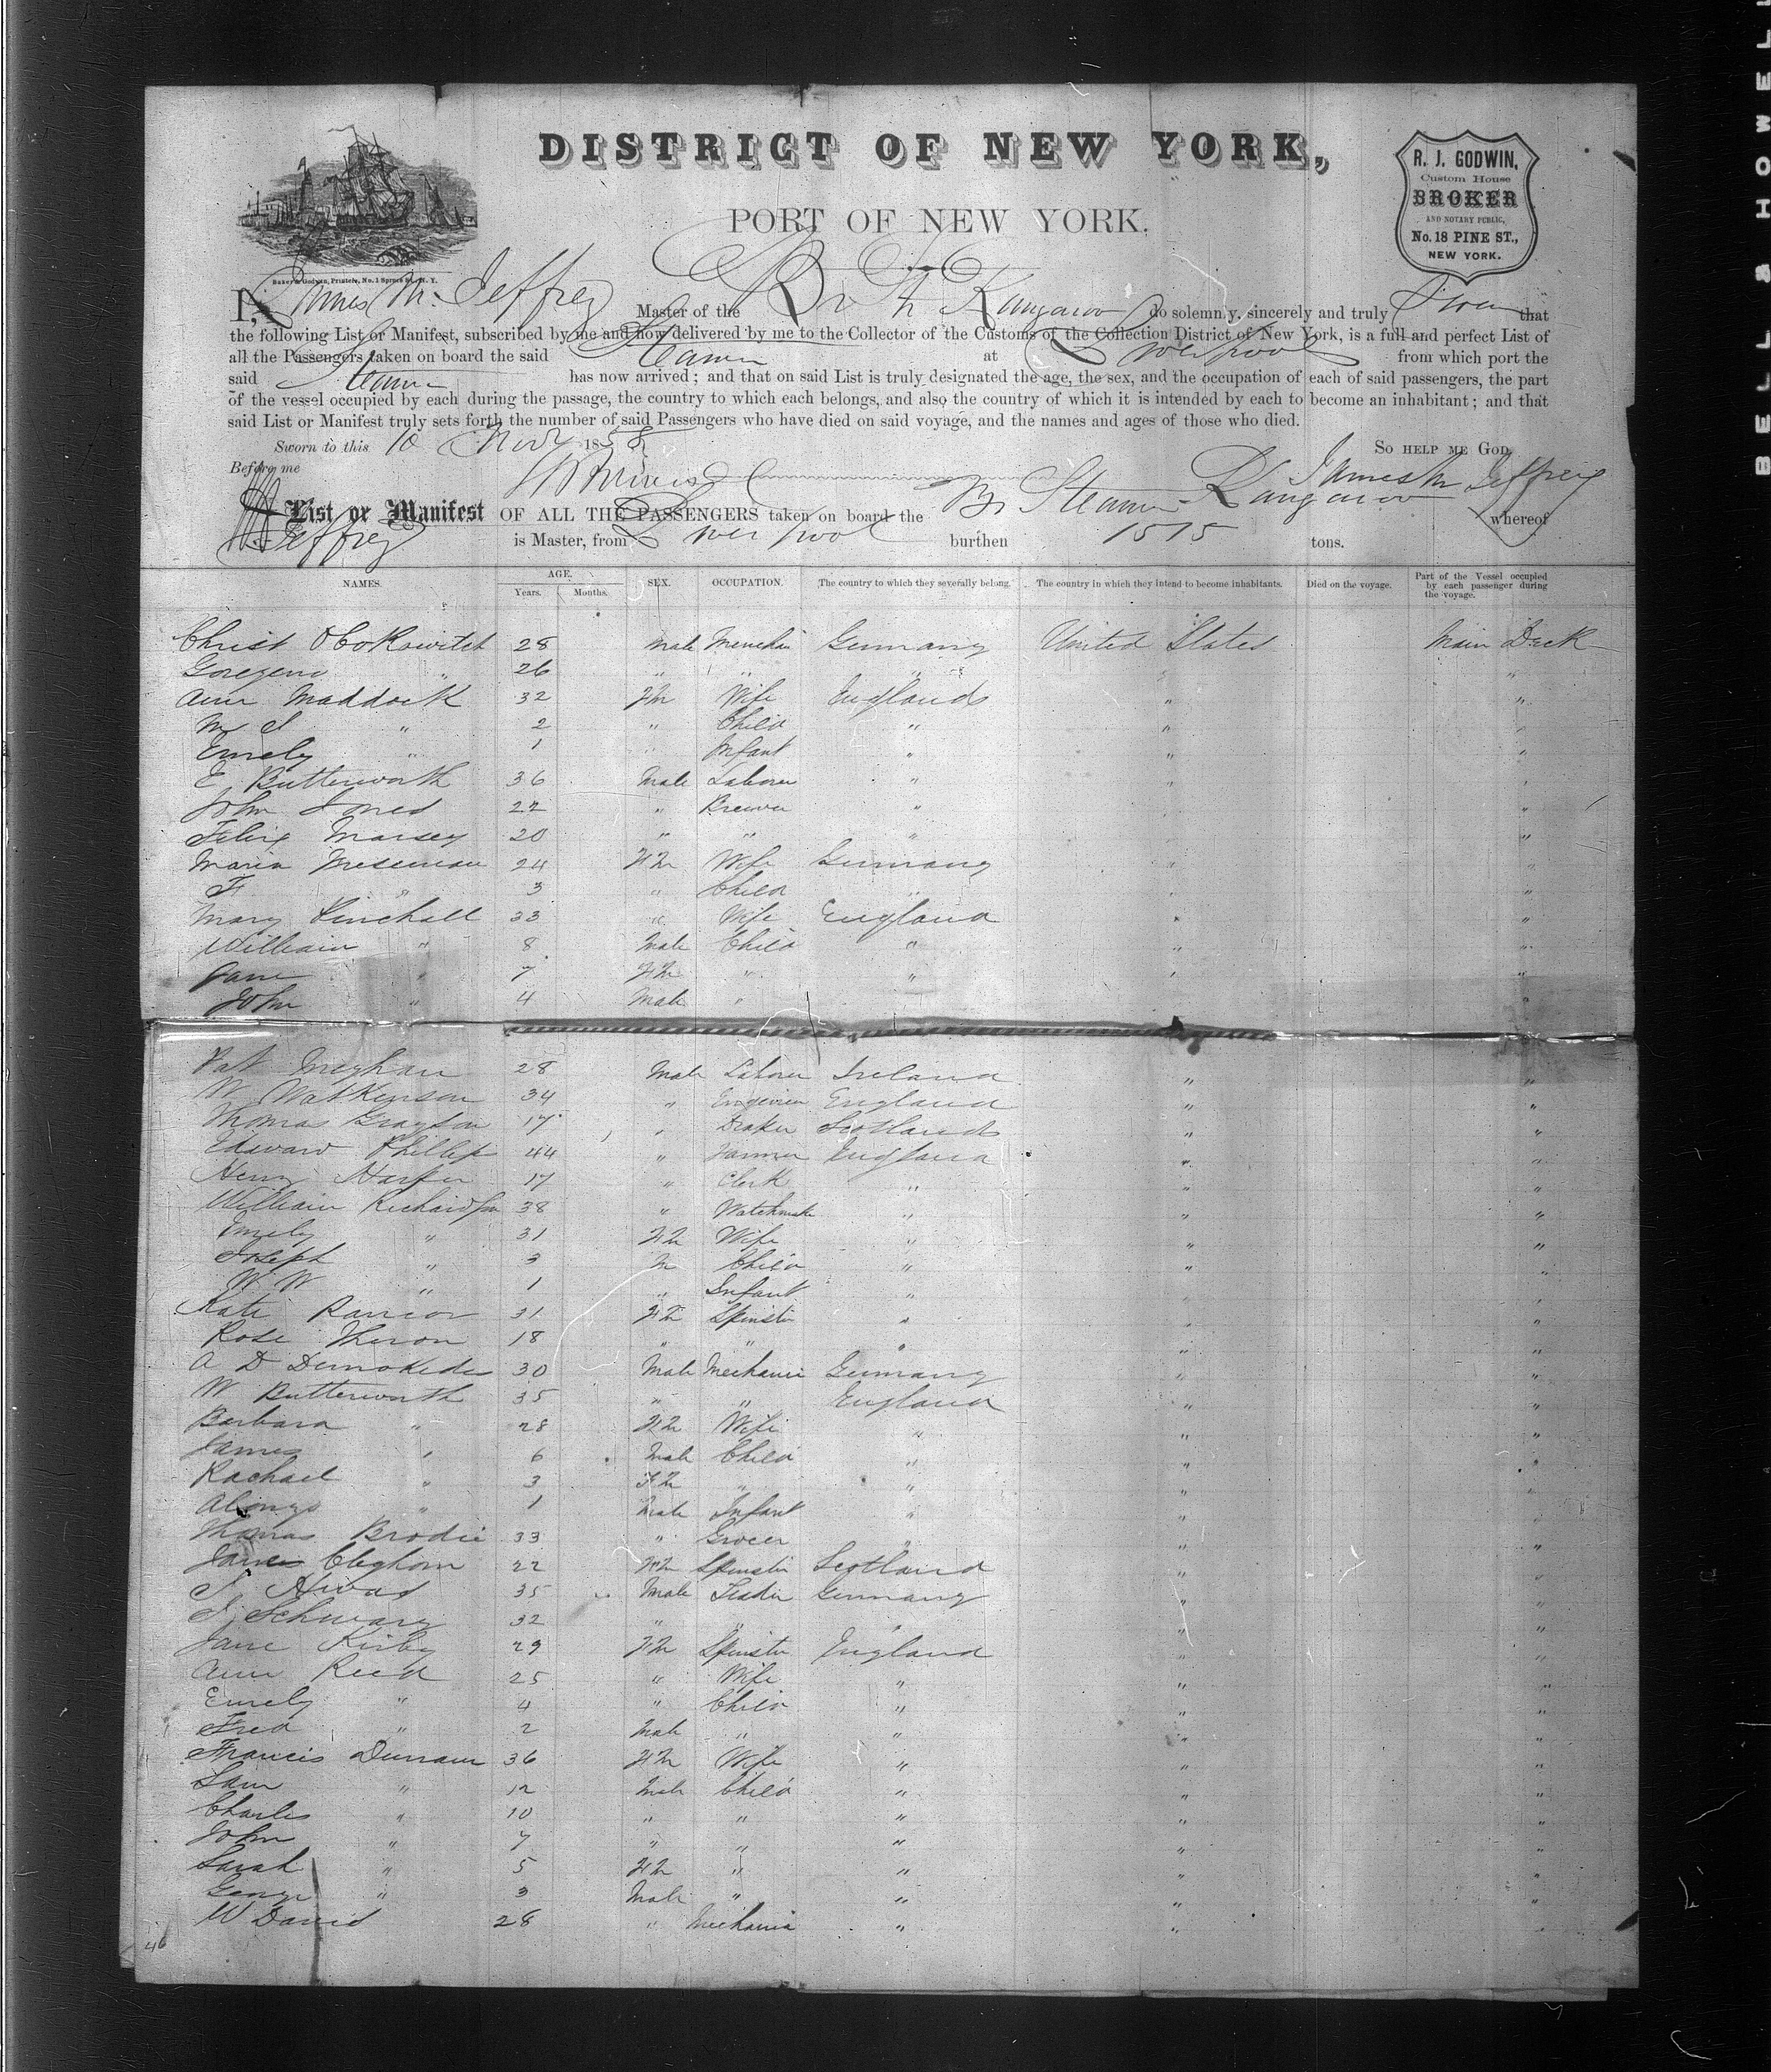 DISTRICT OF NEW YORK,
PORT OF NEW YORK.
R. J. GODWIN,
Custom House
BROKER
AND NOTARY PUBLIC,
No. 18 PINE ST.,
NEW YORK.
Baker & Godwin, Printers, No. 1 Spruce St., N. Y.
I, James M. Jeffrey Master of the Br Kangaroo do solemnly, sincerely and truly swear that
the following List or Manifest, subscribed by me and now delivered by me to the Collector of the Customs of the Collection District of New York, is a full and perfect List of
all the Passengers taken on board the said Steamer at Liverpool from which port the
said Steamer has now arrived; and that on said List is truly designated the age, the sex, and the occupation of each of said passengers, the part
of the vessel occupied by each during the passage, the country to which each belongs, and also the country of which it is intended by each to become an inhabitant; and that
said List or Manifest truly sets forth the number of said Passengers who have died on said voyage, and the names and ages of those who died.
Sworn to this 10 Nov 1858 SO HELP ME GOD,
Before me James M Jeffrey
List or Manifest OF ALL THE PASSENGERS taken on board the Br Steamer Kangaroo whereof
Jeffrey is Master, from Liverpool burthen 1575 tons.
NAMES. AGE. Years. Months. SEX. OCCUPATION. The country to which they severally belong. The country in which they intend to become inhabitants. Died on the voyage. Part of the Vessel occupied by each passenger during the voyage.
Christ 28 Male Germany United States Main Deck
" 26 " " " "
Ann Maddock 32 Fm Wife England " "
M J " 2 " Child " " "
Emely " 1 " Infant " " "
E Butterworth 36 Male Laborer " " "
John Jones 22 " Brewer " " "
Felix Marsey 20 " " " " "
Maria 24 Fm Wife Germany " "
F " 3 " Child " " "
Mary 33 " Wife England " "
William " 8 Male Child " " "
Jane " 7 Fm " " " "
John " 4 Male " "
Pat Meghan 28 Male Laborer Ireland " "
W Watkinson 34 " Engineer England " "
Thomas Grayson 17 " Draper Scotland " "
Edward Phillip 44 " Farmer England " "
Henry Harper 17 " Clerk " " "
William Richardson 38 " Watchmake " " "
Emely " 31 Fm Wife " " "
Joseph " 3 M Child " " "
W W " 1 " Infant " "
Kate 31 Fm Spinster " " "
Rose Theron 18 " " " " "
A D 30 Male Mechanic Germany " "
W Butterworth 35 " " England " "
Barbara " 28 Fm Wife " " "
James " 6 Male Child " " "
Rachael " 3 Fm " " " "
Alonzo " 1 Male Infant " " "
Thomas Brodie 33 " Grocer " " "
Jane Cleghorn 22 Fm Spinster Scotland " "
35 Male Germany " "
J Schwarz 32 " " " " "
Jane Kirby 29 Fm Spinster England " "
Ann Reed 25 " Wife " " "
Emely " 4 " Child " " "
Fred " 2 Male " " " "
Francis Durram 36 Fm Wife " " "
Sam " 12 Male Child " " "
Charles " 10 " " " " "
John " 7 " " " " "
Sarah " 5 Fm " " " "
George " 3 Male " " " "
W David 28 " Mechanic " " "
46
BELL & HOWEL